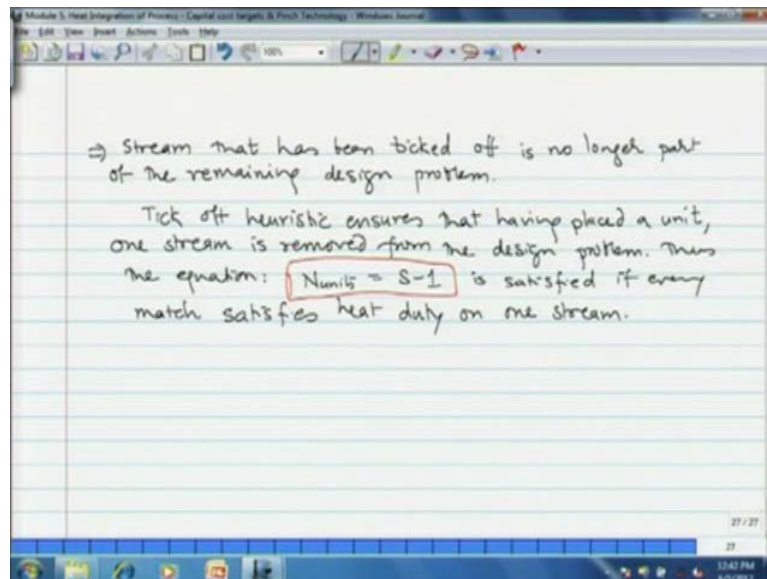 Module 5. Heat Integration of Process - Capital cost targets & Pinch Technology - Windows Journal
File Edit View Insert Actions Tools Help
100%
⇒ Stream that has been ticked off is no longer part
of the remaining design problem.
Tick off heuristic ensures that having placed a unit,
one stream is removed from the design problem. Thus
the equation: Nunits = S-1 is satisfied if every
match satisfies heat duty on one stream.
27 / 27
27
12:42 PM